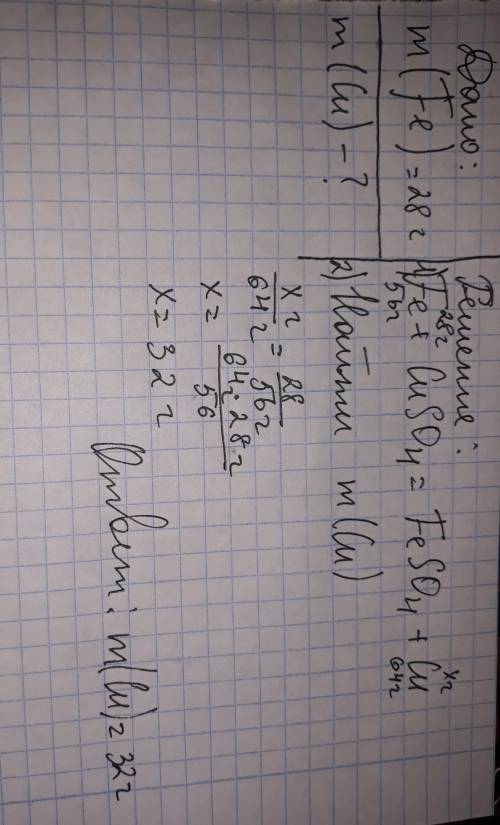 Дано:
m(Fe) = 28г
m(Cu) - ?
Решение:
28г хг
1) Fe + CuSO4 = FeSO4 + Cu
56г 64г
2) Найти m(Cu)
х г / 64г = 28 / 56г
х = 64г · 28г / 56
х = 32 г
Ответ: m(Cu) = 32г